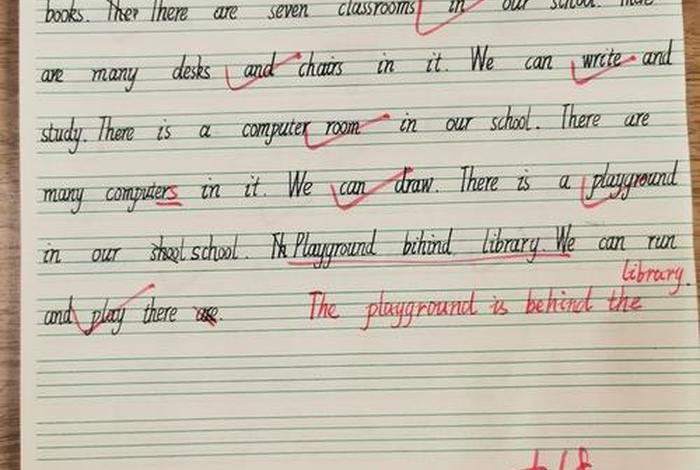 books. There are seven classrooms in our school.
are many desks and chairs in it. We can write and
study. There is a computer room in our school. There are
many computers in it. We can draw. There is a playground
in our school. Playground bihind library. We can run
library.
and play there The playground is behind the